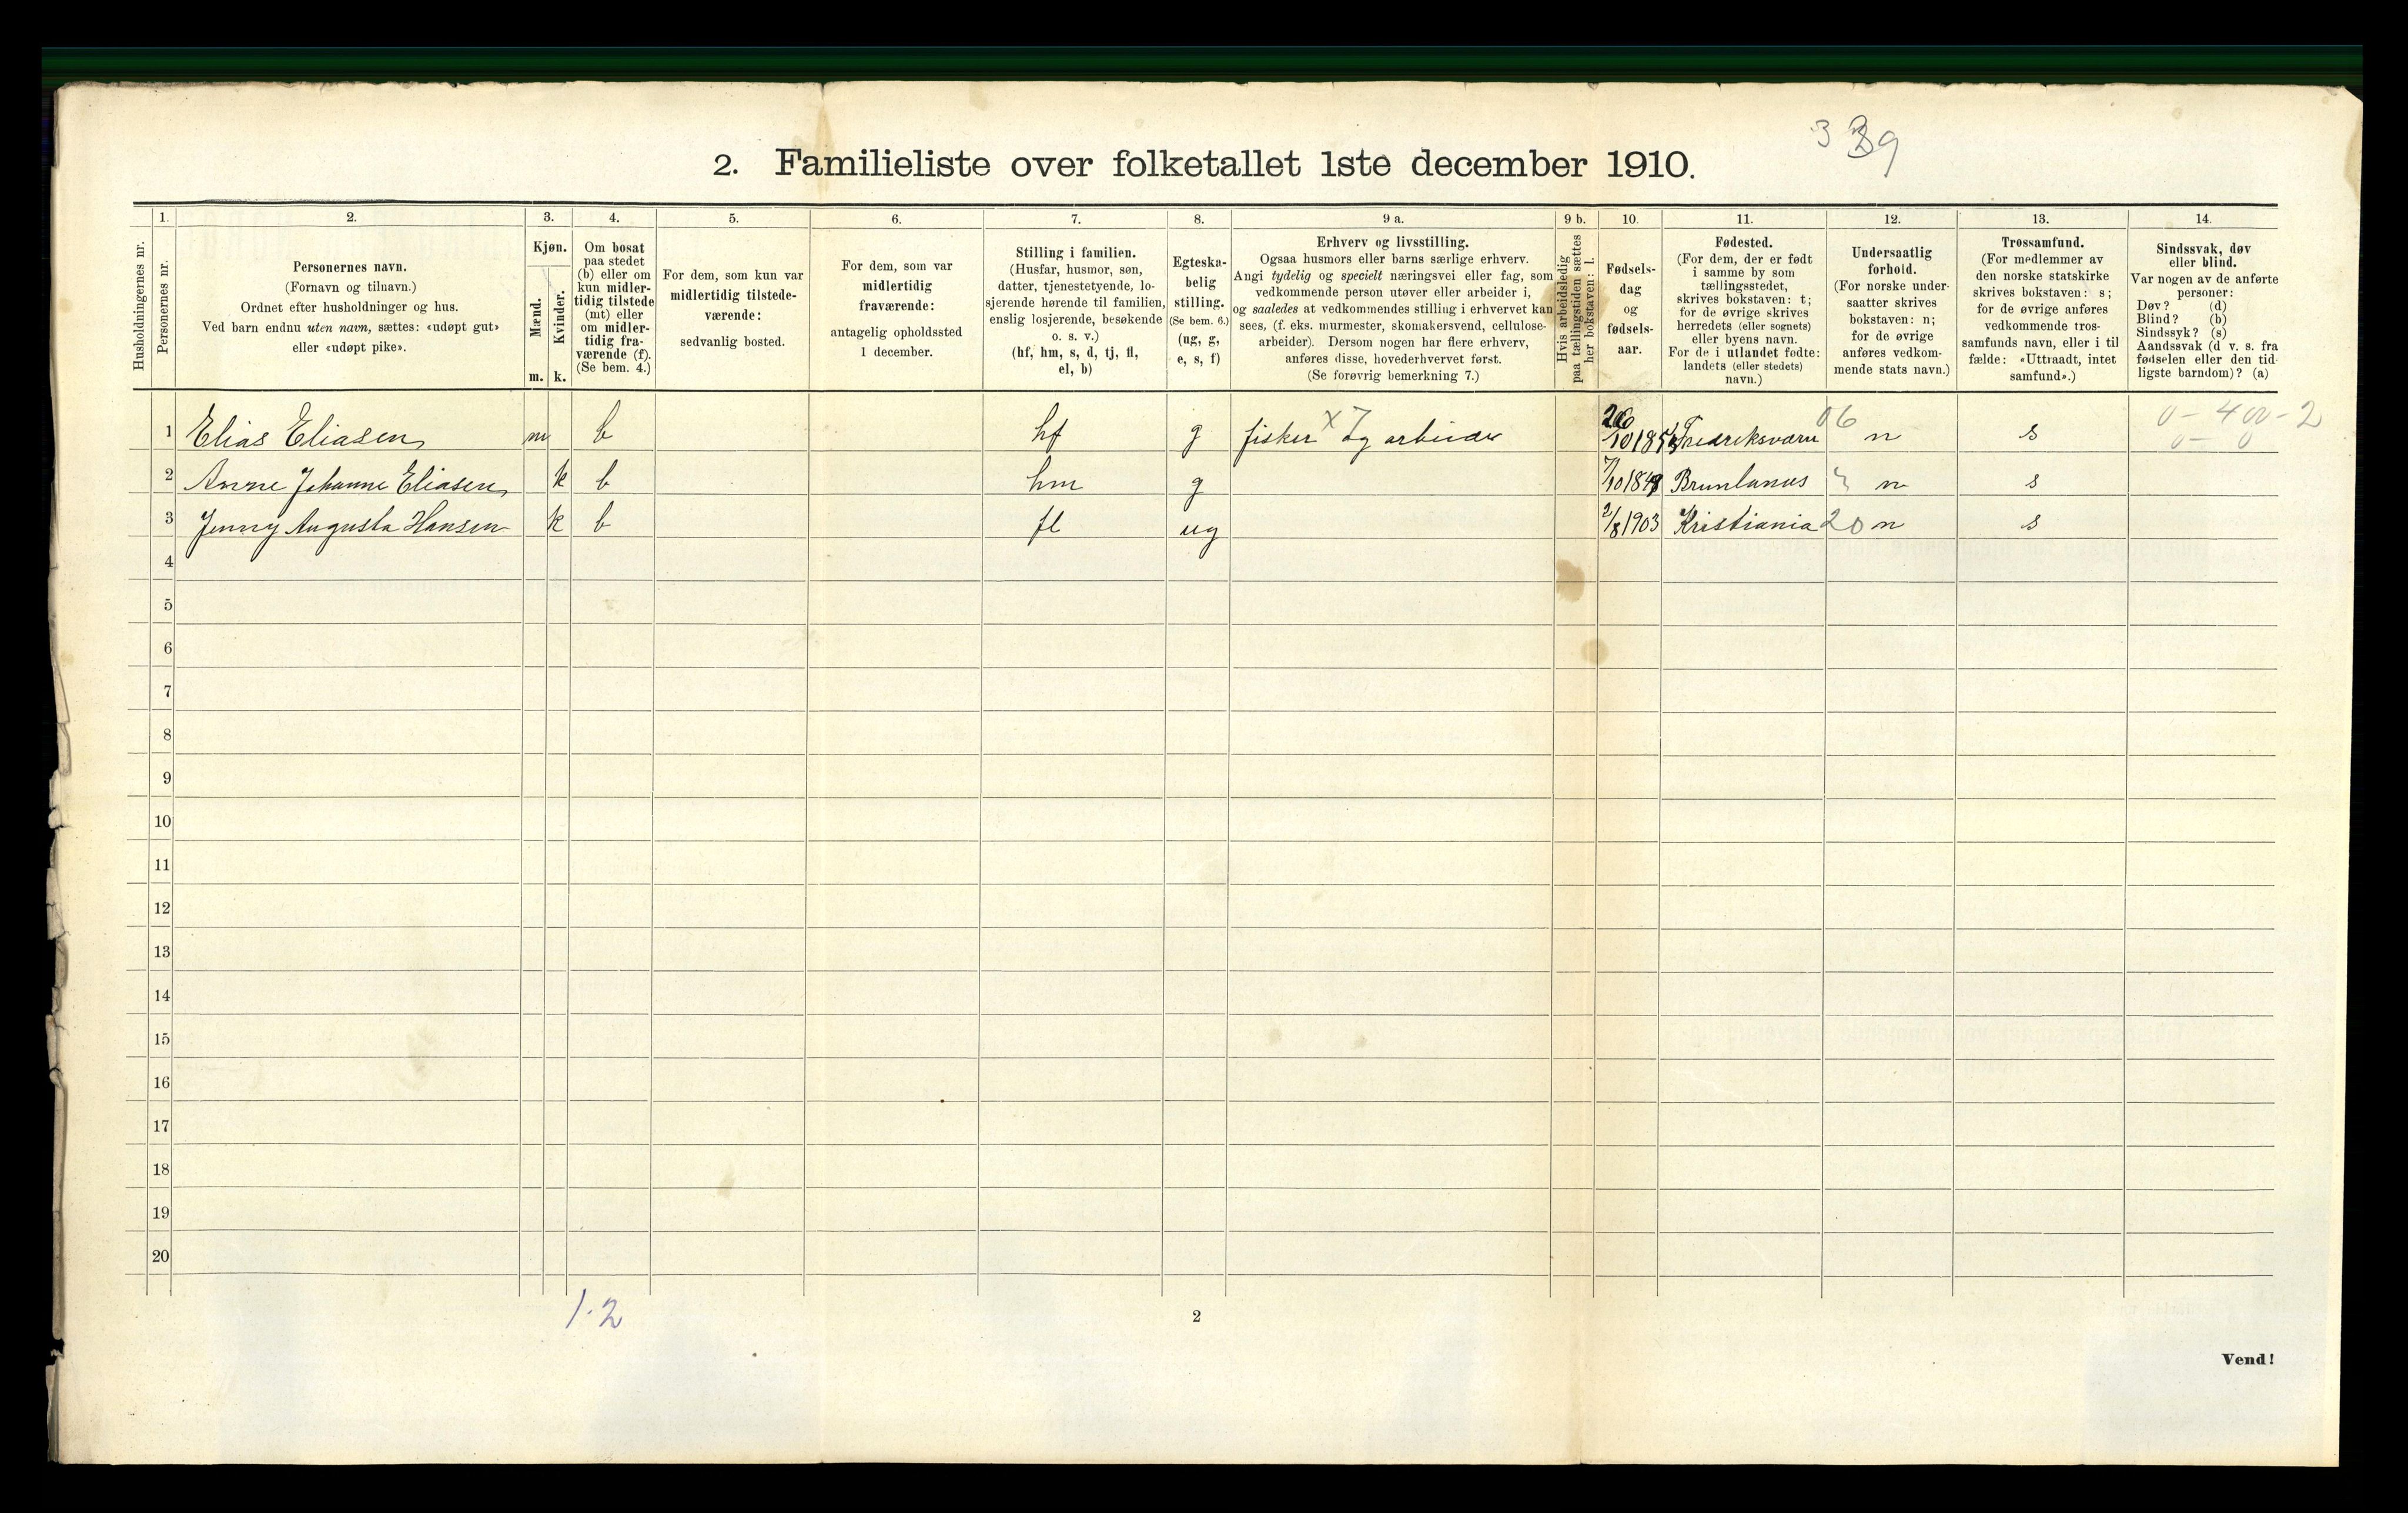 3 39
2. Familieliste over folketallet 1ste december 1910.
Husholdningernes nr.
1.
Personernes nr.
2.
Personernes navn.
(Fornavn og tilnavn.)
Ordnet efter husholdninger og hus.
Ved barn endnu uten navn, sættes: «udøpt gut»
eller «udøpt pike».
3.
Kjøn.
Mænd.
Kvinder.
m. k.
4.
Om bosat
paa stedet
(b) eller om
kun midler-
tidig tilstede
(mt) eller
om midler-
tidig fra-
værende (f).
(Se bem. 4.)
5.
For dem, som kun var
midlertidig tilstede-
værende:
sedvanlig bosted.
6.
For dem, som var
midlertidig
fraværende:
antagelig opholdssted
1 december.
7.
Stilling i familien.
(Husfar, husmor, søn,
datter, tjenestetyende, lo-
sjerende hørende til familien,
enslig losjerende, besøkende
o. s. v.)
(hf, hm, s, d, tj, fl,
el, b)
8.
Egteska-
belig
stilling.
(Se bem. 6.)
(ug, g,
e, s, f)
9 a.
Erhverv og livsstilling.
Ogsaa husmors eller barns særlige erhverv.
Angi tydelig og specielt næringsvei eller fag, som
vedkommende person utøver eller arbeider i,
og saaledes at vedkommendes stilling i erhvervet kan
sees, (f. eks. murmester, skomakersvend, cellulose-
arbeider). Dersom nogen har flere erhverv,
anføres disse, hovederhvervet først.
(Se forøvrig bemerkning 7.)
9 b.
Hvis arbeidsledig
paa tællingstiden sættes
her bokstaven: l.
10.
Fødsels-
dag
og
fødsels-
aar.
11.
Fødested.
(For dem, der er født
i samme by som
tællingsstedet,
skrives bokstaven: t;
for de øvrige skrives
herredets (eller sognets)
eller byens navn.
For de i utlandet fødte:
landets (eller stedets)
navn.)
12.
Undersaatlig
forhold.
(For norske under-
saatter skrives
bokstaven: n;
for de øvrige
anføres vedkom-
mende stats navn.)
13.
Trossamfund.
(For medlemmer av
den norske statskirke
skrives bokstaven: s;
for de øvrige anføres
vedkommende tros-
samfunds navn, eller i til
fælde: «Uttraadt, intet
samfund».)
14.
Sindssvak, døv
eller blind.
Var nogen av de anførte
personer:
Døv? (d)
Blind? (b)
Sindssyk? (s)
Aandssvak (d v. s. fra
fødselen eller den tid-
ligste barndom)? (a)
1 Elias Eliasen m b hf g fisker x og arbeider Fredriksværn 06 n s 0 - 400 - 2
0 - 0
2 Anne Johanne Eliasen k b hm g 7/10 1849 Brunlanes n s
3 Jenny Augusta Hansen k b fl ug 2/8 1903 Kristiania 20 n s
4
5
6
7
8
9
10
11
12
13
14
15
16
17
18
19
20
1-2
2
Vend!